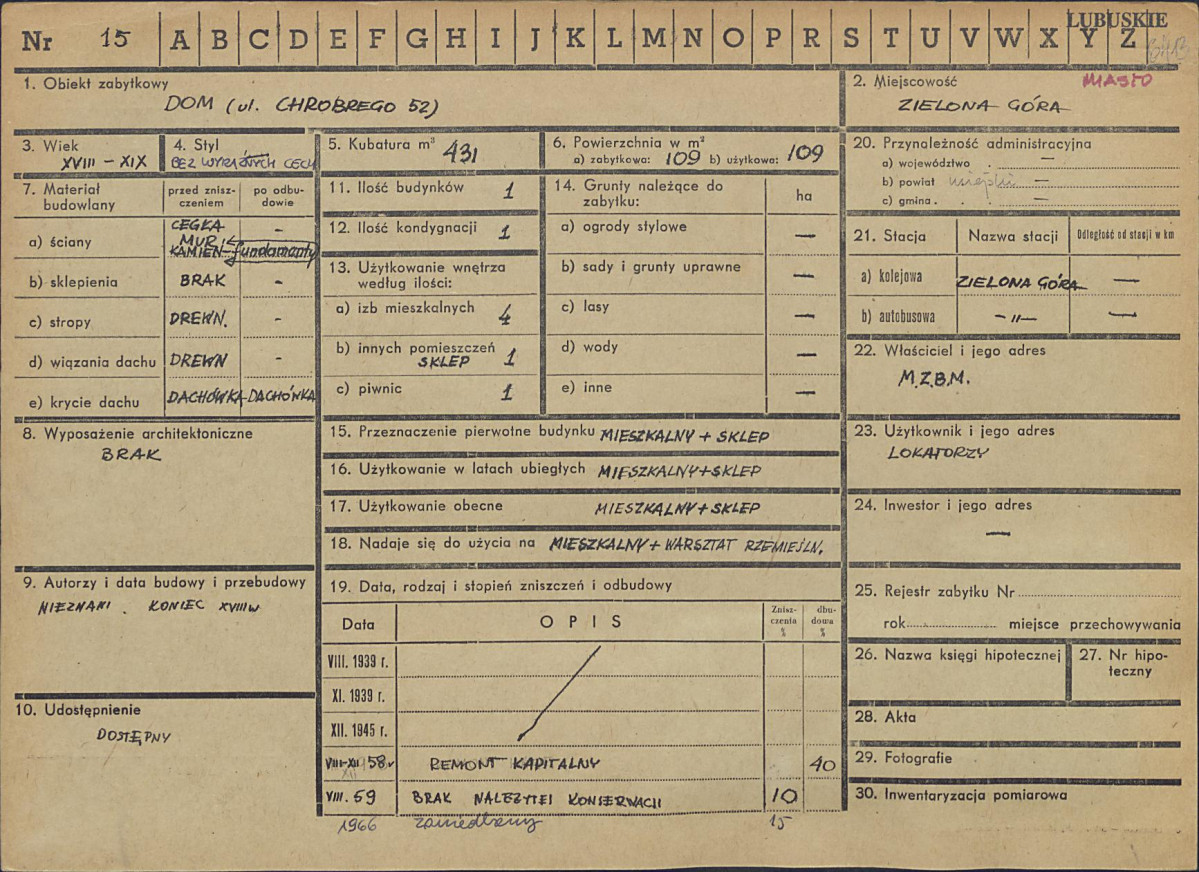 LUBUSKIE
Nr 15 A B C D E F G H I J K L M N O P R S T U V W X Y Z
1. Obiekt zabytkowy
DOM (ul. CHROBREGO 52)
2. Miejscowość MIASTO
ZIELONA GÓRA
3. Wiek
XVIII – XIX
4. Styl
BEZ WYRAŹNYCH CECH
5. Kubatura m³ 431
6. Powierzchnia w m²
a) zabytkowa: 109 b) użytkowa: 109
7. Materiał budowlany
przed zniszczeniem
po odbudowie
a) ściany CEGŁA MUR KAMIEŃ – fundamenty –
b) sklepienia BRAK –
c) stropy DREWN. –
d) wiązania dachu DREWN –
e) krycie dachu DACHÓWKA DACHÓWKA
8. Wyposażenie architektoniczne
BRAK
9. Autorzy i data budowy i przebudowy
NIEZNANI. KONIEC XVIII w
10. Udostępnienie
DOSTĘPNY
11. Ilość budynków 1
12. Ilość kondygnacji 1
13. Użytkowanie wnętrza
według ilości:
a) izb mieszkalnych 4
b) innych pomieszczeń
SKLEP 1
c) piwnic 1
14. Grunty należące do
zabytku: ha
a) ogrody stylowe —
b) sady i grunty uprawne —
c) lasy —
d) wody —
e) inne —
15. Przeznaczenie pierwotne budynku MIESZKALNY + SKLEP
16. Użytkowanie w latach ubiegłych MIESZKALNY + SKLEP
17. Użytkowanie obecne MIESZKALNY + SKLEP
18. Nadaje się do użycia na MIESZKALNY + WARSZTAT RZEMIEŚLN.
19. Data, rodzaj i stopień zniszczeń i odbudowy
Data OPIS Zniszczenia % dbudowa %
VIII. 1939 r.
XI. 1939 r.
XII. 1945 r.
VIII-XII 58 r REMONT KAPITALNY 40
XII
VIII. 59 BRAK NALEŻYTEJ KONSERWACJI 10
1966 zaniedbany 15
20. Przynależność administracyjna
a) województwo . —
b) powiat miejski —
c) gmina . . —
21. Stacja Nazwa stacji Odległość od stacji w km
a) kolejowa ZIELONA GÓRA —
b) autobusowa – „ – —
22. Właściciel i jego adres
M.Z.B.M.
23. Użytkownik i jego adres
LOKATORZY
24. Inwestor i jego adres
—
25. Rejestr zabytku Nr
rok miejsce przechowywania
26. Nazwa księgi hipotecznej
27. Nr hipoteczny
28. Akta
29. Fotografie
30. Inwentaryzacja pomiarowa